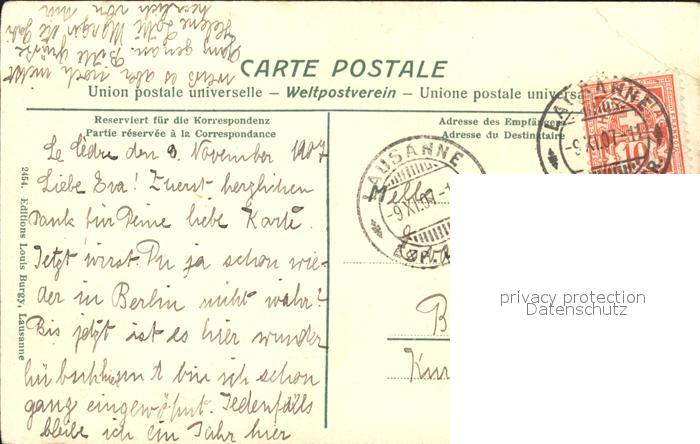 CARTE POSTALE
Union postale universelle – Weltpostverein – Unione postale universa
Reserviert für die Korrespondenz
Partie réservée à la Correspondance
Adresse des Empfäng
Adresse du Destinataire
Le Cèdre den 8. November 1907
Liebe Eva! Zuerst herzlichen
Dank für Deine liebe Karte.
Jetzt wirst Du ja schon wie-
der in Berlin nicht wahr?
Bis jetzt ist es hier wunder
hübsch bin ich schon
ganz eingewöhnt. Jedenfalls
bleibe ich ein Jahr hier
weiss es aber noch nicht
ganz genau. Bitte Grüsse
Helene Lotte die
herzlich von mir
2454. Editions Louis Burgy, Lausanne
LAUSANNE
-9.XI.07
LAUSANNE
-9.XI.07.-11
10
Melle
B
Kur
privacy protection
Datenschutz